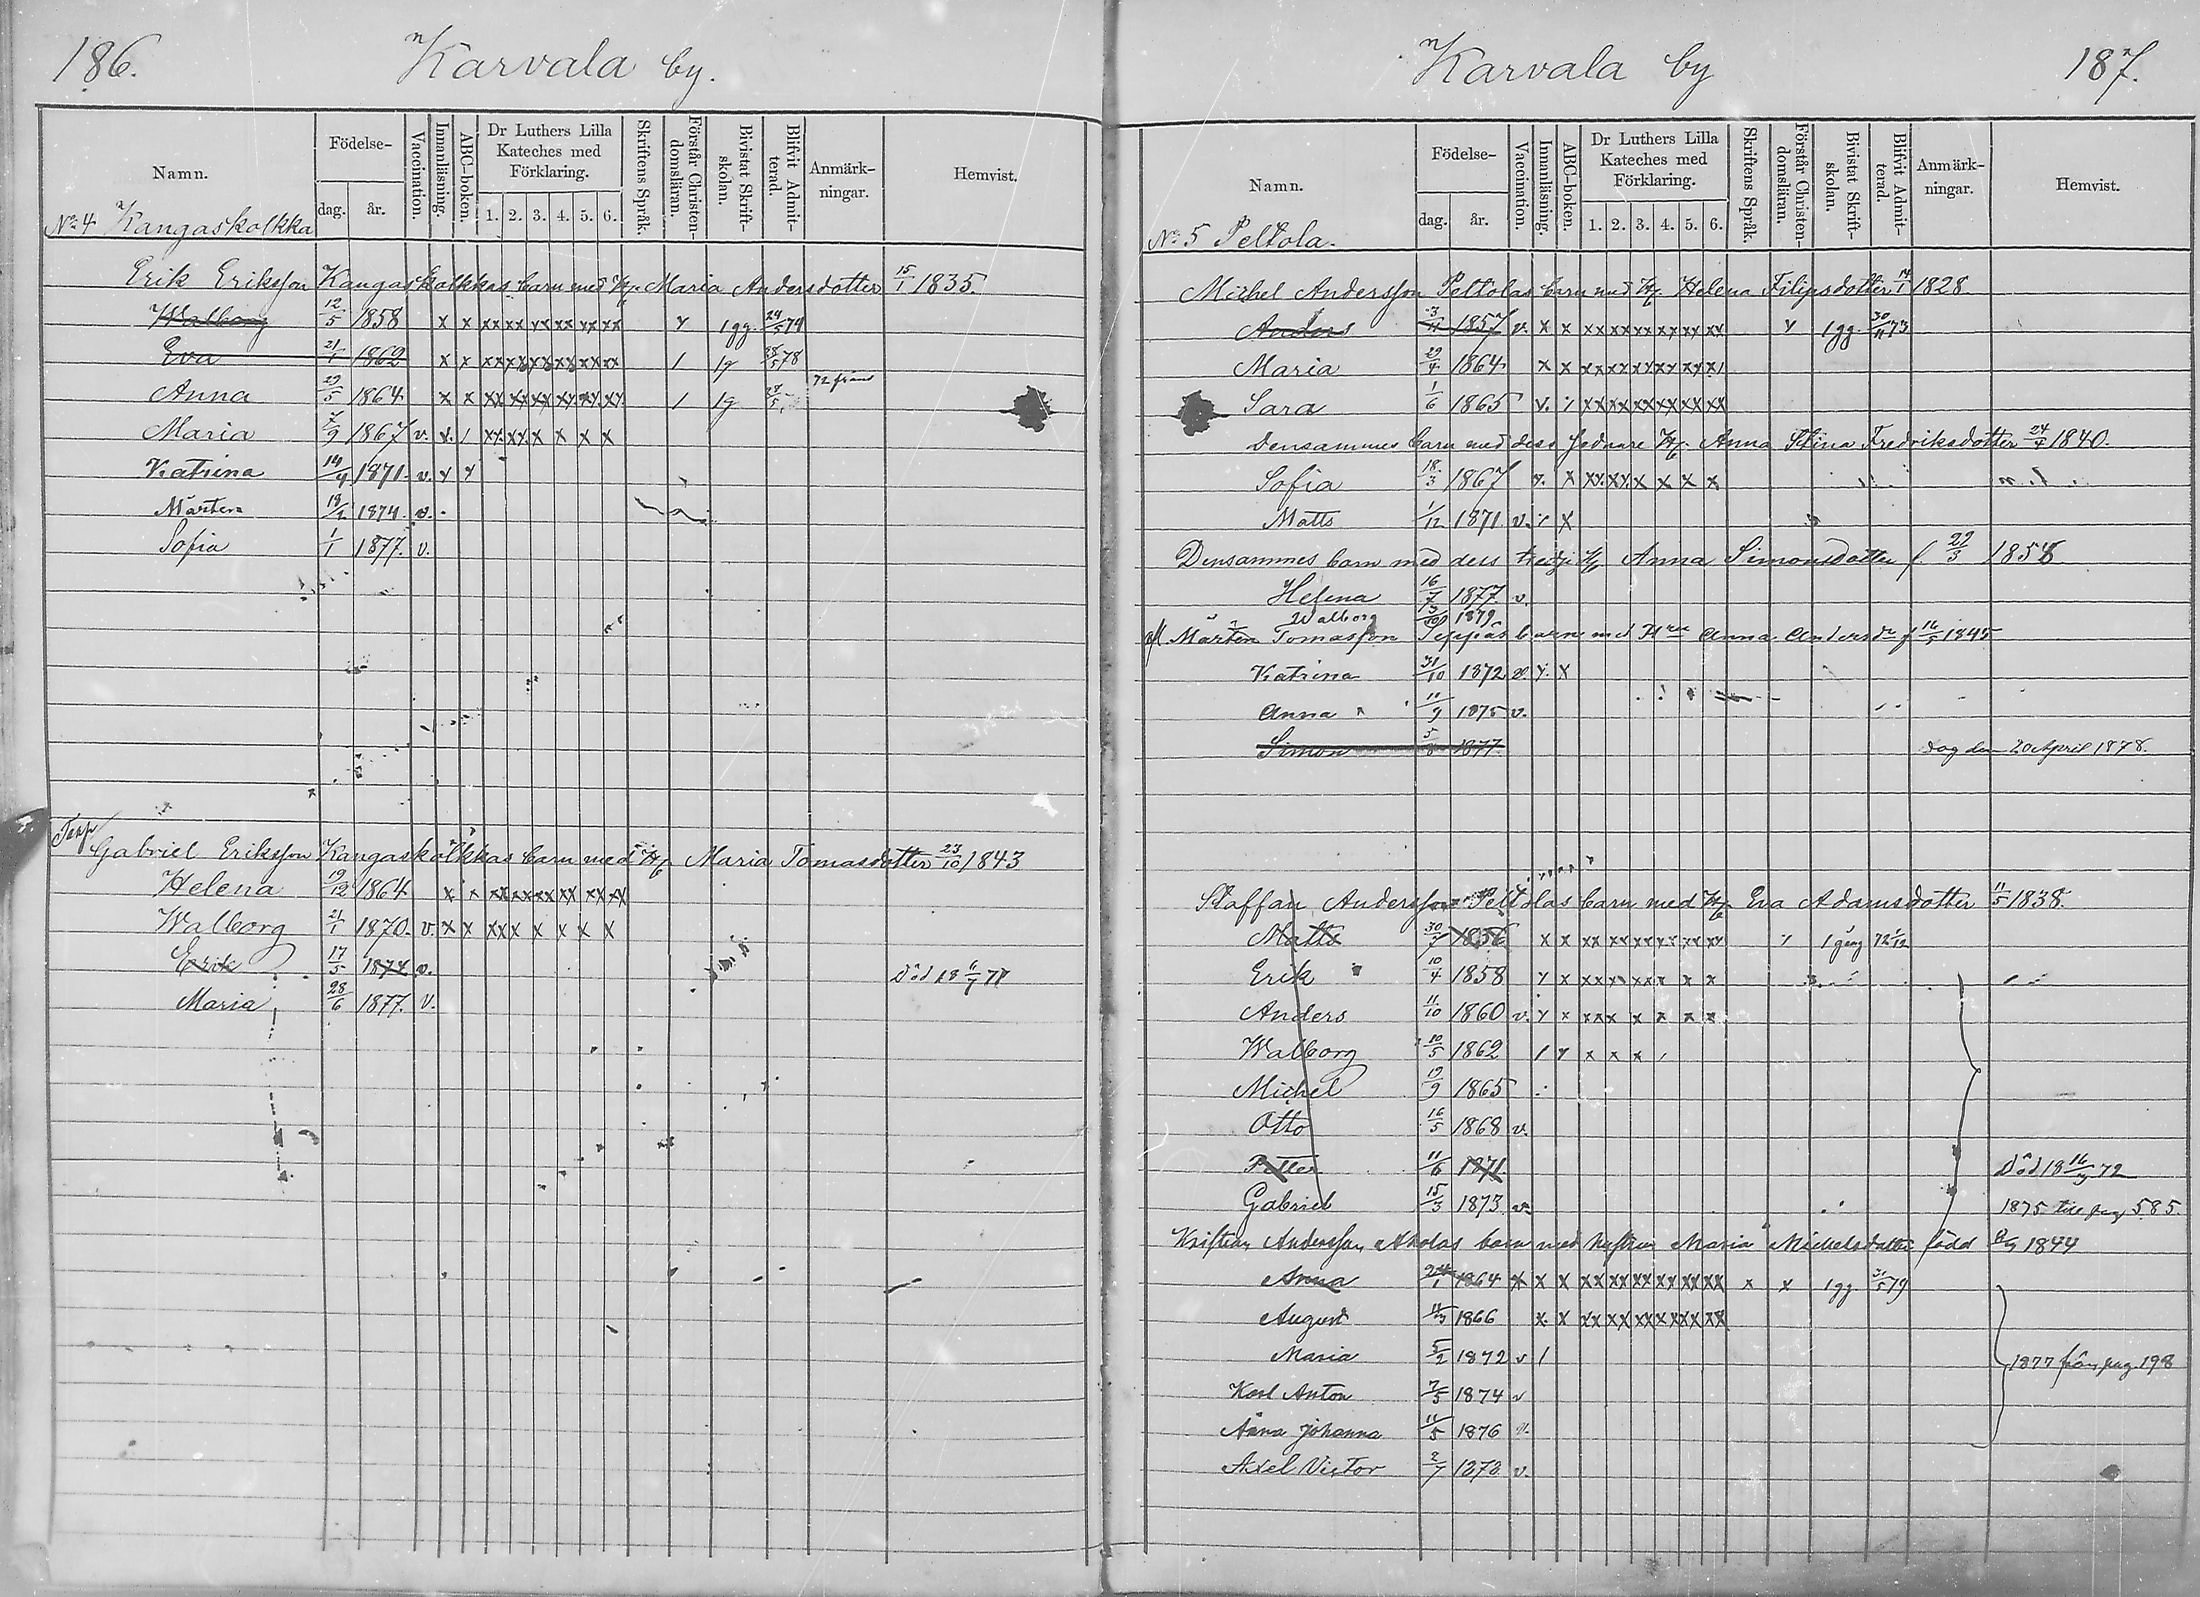 186.
Karvala by.
Namn.
Födelse-
dag.
år.
Vaccination.
Innanläsning.
ABC-boken.
Dr Luthers Lilla
Kateches med
Förklaring.
1. 2. 3. 4. 5. 6.
Skriftens Språk.
Förstår Christen-
domsläran.
Bivistat Skrift-
skolan.
Blifvit Admit-
terad.
Anmärk-
ningar.
Hemvist.
No 4 Kangaskolkka
Erik Eriksson Kangaskolkkas barn med H. Maria Andersdotter 15/1 1835.
Walborg 12/5 1858 x x xx xx xx xx xx xx 1gg 24/5 74
Eva 21/1 1862 x x xx xx xx xx xx xx 1 1g 28/5 78
Anna 29/5 1864 x x xx xx xx xx xx xx 1 1g
Maria 7/9 1867 v. x. / xx xx x x x x
Katrina 1871 v. x x
Mårten 1874 v.
Sofia 1/1 1877. v.
Gabriel Eriksson Kangaskolkkas barn med H. Maria Tomasdotter 23/10 1843
Helena 19/12 1864 x x xx xx xx xx xx xx
Walborg 21/1 1870. v. x x xx x x x x x
Erik 17/5 1874 v. Död 18
Maria 28/6 1877. v.
Karvala by
187.
Namn.
Födelse-
dag.
år.
Vaccination.
Innanläsning.
ABC-boken.
Dr Luthers Lilla
Kateches med
Förklaring.
1. 2. 3. 4. 5. 6.
Skriftens Språk.
Förstår Christen-
domsläran.
Bivistat Skrift-
skolan.
Blifvit Admit-
terad.
Anmärk-
ningar.
Hemvist.
No 5 Peltola.
Michel Andersson Peltolas barn med H. Helena Filipsdotter 14/1 1828
Anders 1857 v. x x xx xx xx xx xx xx 1gg 30/11 73
Maria 29/4 1864 x x xx xx xx xx xx x/
Sara 1/6 1865 v. xx xx xx xx xx xx
Densammes barn med dess sednare H. Anna Stina Fredriksdotter 24/4 1840.
Sofia 18/3 1867 x xx xx x x x x
Matts 1/12 1871 v. x
Densammes barn med dess tredje H. Anna Simonsdotter f. 29/3 1858
Helena 16/7 1877 v.
Walborg 13/10 1879
Mårten Tomasson Seppäs barn med Anna Andersdr f. 16/5 1845
Katrina 31/10 1872 v x
Anna 11/9 1875 v.
Simon 5/8 1877. Dog den 20 April 1878.
Staffan Andersson Peltolas barn med H. Eva Adamsdotter 11/5 1838.
Matts 30/7 1856 x x xx xx xx xx xx xx 1 gång 72
Erik 10/4 1858 x x xx xx xx x x x
Anders 11/10 1860 v. x x xx x x x x x
Walborg 10/5 1862 / x x x x
Michel 19/9 1865
Otto 16/5 1868 v.
Petter 11/6 1871 Död 18 72
Gabriel 15/3 1873 v. 1875 till pag 585.
Kristian Andersson Aholas barn med hustrun Maria Michelsdotter född 1844
Anna 24/1 1864 x x x xx xx xx xx xx xx x x 1gg 31/5 79
August 1866 x. x xx xx xx xx xx xx
Maria 5/2 1872 v / 1877 från pag. 198
Karl Anton 7/5 1874 v
Anna Johanna 11/5 1876 v.
Axel Victor 2/7 1878 v.